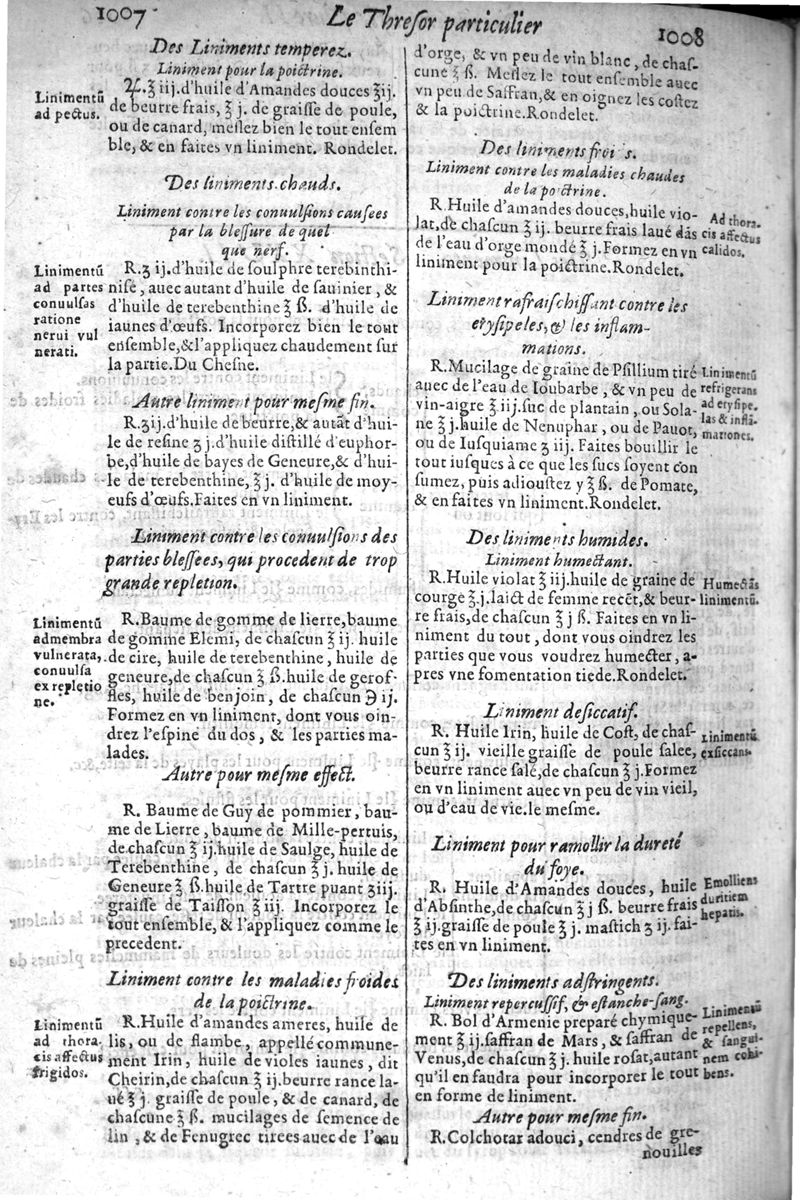 1007
Le Thresor particulier
1008
Des Liniments temperez.
Liniment pour la poictrine.
Linimentũ
ad pectus.
♃.ʒ iij.d'huile d'Amandes douces ʒij.
de beurre frais, ʒ j. de graiſſe de poule,
ou de canard, meſlez bien le tout enſem
ble, & en faites vn liniment. Rondelet.
Des liniments chauds.
Liniment contre les conuulſions cauſees
par la bleſſure de quel
que nerf.
Linimentũ
ad partes
conuulſas
ratione
nerui vul
nerati.
R.ʒ ij.d'huile de ſoulphre terebinthi-
niſé, auec autant d'huile de ſauinier, &
d'huile de terebenthine ʒ ß. d'huile de
iaunes d'œufs. Incorporez bien le tout
enſemble,&l'appliquez chaudement ſur
la partie.Du Cheſne.
Autre liniment pour meſme fin.
R.ʒij.d'huile de beurre,& autãt d'hui-
le de reſine ʒ j.d'huile diſtillé d'euphor-
be,d'huile de bayes de Geneure,& d'hui-
le de terebenthine, ʒ j. d'huile de moy-
eufs d'œufs.Faites en vn liniment.
Liniment contre les conuulſions des
parties bleſſees, qui procedent de trop
grande repletion.
Linimentũ
admembra
vulnerata,
conuulſa
ex repletio
ne.
R.Baume de gomme de lierre,baume
de gomme Elemi, de chaſcun ʒ ij. huile
de cire, huile de terebenthine, huile de
geneure,de chaſcun ʒ ß.huile de gerof-
fles, huile de benjoin, de chaſcun ℈ ij.
Formez en vn liniment, dont vous oin-
drez l'eſpine du dos, & les parties ma-
lades.
Autre pour meſme effect.
R. Baume de Guy de pommier, bau-
me de Lierre, baume de Mille-pertuis,
de chaſcun ʒ ij.huile de Saulge, huile de
Terebenthine, de chaſcun ʒ j. huile de
Geneure ʒ ß.huile de Tartre puant ʒiij.
graiſſe de Taiſſon ʒ iij. Incorporez le
tout enſemble, & l'appliquez comme le
precedent.
Liniment contre les maladies froides
de la poictrine.
Linimentũ
ad thora,
cis affectus
frigidos.
R.Huile d'amandes ameres, huile de
lis, ou de flambe, appellé commune-
ment Irin, huile de violes iaunes, dit
Cheirin,de chaſcun ʒ ij.beurre rance la-
ué ʒ j. graiſſe de poule, & de canard, de
chaſcune ʒ ß. mucilages de ſemence de
lin, & de Fenugrec tirees auec de l'eau
d'orge, & vn peu de vin blanc, de chaſ-
cune ʒ ß. Meſlez le tout enſemble auec
vn peu de Saffran,& en oignez les coſtez
& la poictrine.Rondelet.
Des liniments frois.
Liniment contre les maladies chaudes
de la poictrine.
R.Huile d'amandes douces,huile vio-
lat,de chaſcun ʒ ij. beurre frais laué dãs
de l'eau d'orge mondé ʒ j.Formez en vn
liniment pour la poictrine.Rondelet.
Ad thora.
cis affectus
calidos.
Liniment rafraiſchiſſant contre les
eryſipeles, & les inflam-
mations.
R.Mucilage de graine de Pſillium tiré
auec de l'eau de Ioubarbe, & vn peu de
vin-aigre ʒ iij.ſuc de plantain, ou Sola-
ne ʒ j.huile de Nenuphar, ou de Pauot,
ou de Iuſquiame ʒ iij. Faites bouillir le
tout iuſques à ce que les ſucs ſoyent con
ſumez, puis adiouſtez y ʒ ß. de Pomate,
& en faites vn liniment.Rondelet.
Linimentũ
refrigerans
ad eryſipe.
las & inflã.
mationes.
Des liniments humides.
Liniment humectant.
R.Huile violat ʒ iij.huile de graine de
courge ʒ.j.laict de femme recẽt,& beur-
re frais,de chaſcun ʒ j ß. Faites en vn li-
niment du tout, dont vous oindrez les
parties que vous voudrez humecter, a-
pres vne fomentation tiede.Rondelet.
Humectãs
linimentũ.
Liniment deſiccatif.
R. Huile Irin, huile de Coſt, de chaſ-
cun ʒ ij. vieille graiſſe de poule ſalee,
beurre rance ſalé,de chaſcun ʒ j.Formez
en vn liniment auec vn peu de vin vieil,
ou d'eau de vie.le meſme.
Linimentũ
exſiccans.
Liniment pour ramollir la dureté
du foye.
R. Huile d'Amandes douces, huile
d'Abſinthe,de chaſcun ʒ j ß. beurre frais
ʒ ij.graiſſe de poule ʒ j. maſtich ʒ ij. fai-
tes en vn liniment.
Emolliens
duritiem
hepatis.
Des liniments adſtringents.
Liniment repercuſſif, & eſtanche-ſang.
R. Bol d'Armenie preparé chymique-
ment ʒ ij.ſaffran de Mars, & ſaffran de
Venus,de chaſcun ʒ j. huile roſat,autant
qu'il en faudra pour incorporer le tout
en forme de liniment.
Linimentũ
repellens,
& ſangui-
nem cohi-
bens.
Autre pour meſme fin.
R.Colchotar adouci, cendres de gre-
nouilles